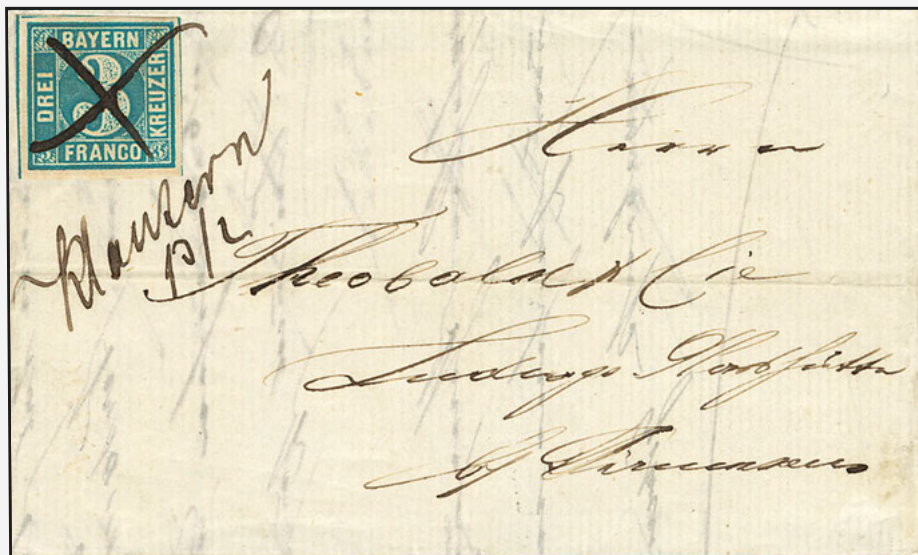 BAYERN
DREI
3
KREUZER
FRANCO
Klausern
13/2
Herrn
Theobald & Cie
Ludwigs
b/ Pirmasens